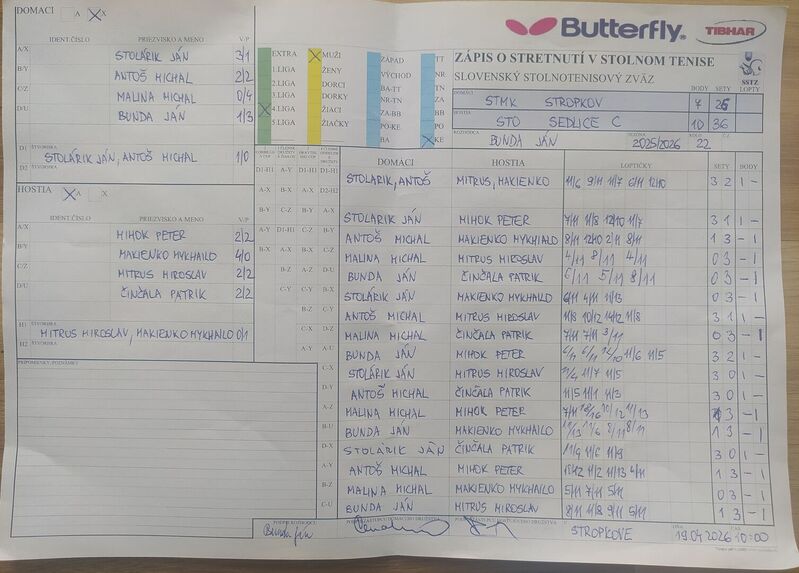 DOMÁCI A X
IDENT.ČÍSLO PRIEZVISKO A MENO V/P
A/X STOLÁRIK JÁN 3/1
B/Y ANTOŠ MICHAL 2/2
C/Z MALINA MICHAL 0/4
D/U BUNDA JÁN 1/3
D1 ŠTVORHRA STOLÁRIK JÁN, ANTOŠ MICHAL 1/0
D2
HOSTIA A X
IDENT.ČÍSLO PRIEZVISKO A MENO V/P
A/X MIHOK PETER 2/2
B/Y MAKIENKO MYKHAILO 4/0
C/Z MITRUS MIROSLAV 2/2
D/U ČINČALA PATRIK 2/2
H1 ŠTVORHRA MITRUS MIROSLAV, MAKIENKO MYKHAILO 0/1
H2 ŠTVORHRA
PRIPOMIENKY, POZNÁMKY
Butterfly TIBHAR
EXTRA
1.LIGA
2.LIGA
3.LIGA
4.LIGA
5.LIGA
MUŽI
ŽENY
DORCI
DORKY
ŽIACI
ŽIAČKY
ZÁPAD
VÝCHOD
BA-TT
NR-TN
ZA-BB
PO-KE
BA
TT
NR
TN
ZA
BB
PO
KE
ZÁPIS O STRETNUTÍ V STOLNOM TENISE
SLOVENSKÝ STOLNOTENISOVÝ ZVÄZ
SSTZ
DOMÁCI BODY SETY LOPTY
STMK STROPKOV 7 26
HOSTIA
STO SEDLICE C 10 36
ROZHODCA BUNDA JÁN SEZÓNA 2025/2026 KOLO 22
DOMÁCI HOSTIA LOPTIČKY SETY BODY
STOLÁRIK, ANTOŠ MITRUS, MAKIENKO 11/6 9/11 11/7 6/11 12/10 3 2 1 -
STOLÁRIK JÁN MIHOK PETER 7/11 11/8 12/10 11/7 3 1 1 -
ANTOŠ MICHAL MAKIENKO MYKHAILO 8/11 12/10 2/11 8/11 1 3 - 1
MALINA MICHAL MITRUS MIROSLAV 4/11 8/11 4/11 0 3 - 1
BUNDA JÁN ČINČALA PATRIK 6/11 5/11 8/11 0 3 - 1
STOLÁRIK JÁN MAKIENKO MYKHAILO 0 3 - 1
ANTOŠ MICHAL MITRUS MIROSLAV 3 1 1 -
MALINA MICHAL ČINČALA PATRIK 7/11 7/11 3/11 0 3 - 1
BUNDA JÁN MIHOK PETER 11/6 11/5 3 2 1 -
STOLÁRIK JÁN MITRUS MIROSLAV 11/7 11/5 3 0 1 -
ANTOŠ MICHAL ČINČALA PATRIK 11/5 11/1 11/3 3 0 1 -
MALINA MICHAL MIHOK PETER 3 - 1
BUNDA JÁN MAKIENKO MYKHAILO 1 3 - 1
STOLÁRIK JÁN ČINČALA PATRIK 11/9 11/6 11/9 3 0 1 -
ANTOŠ MICHAL MIHOK PETER 1 3 - 1
MALINA MICHAL MAKIENKO MYKHAILO 5/11 7/11 5/11 0 3 - 1
BUNDA JÁN MITRUS MIROSLAV 8/11 11/8 9/11 5/11 1 3 - 1
PODPIS ROZHODCU Bunda Ján
V STROPKOVE DŇA 19.04.2026 ČAS 10:00